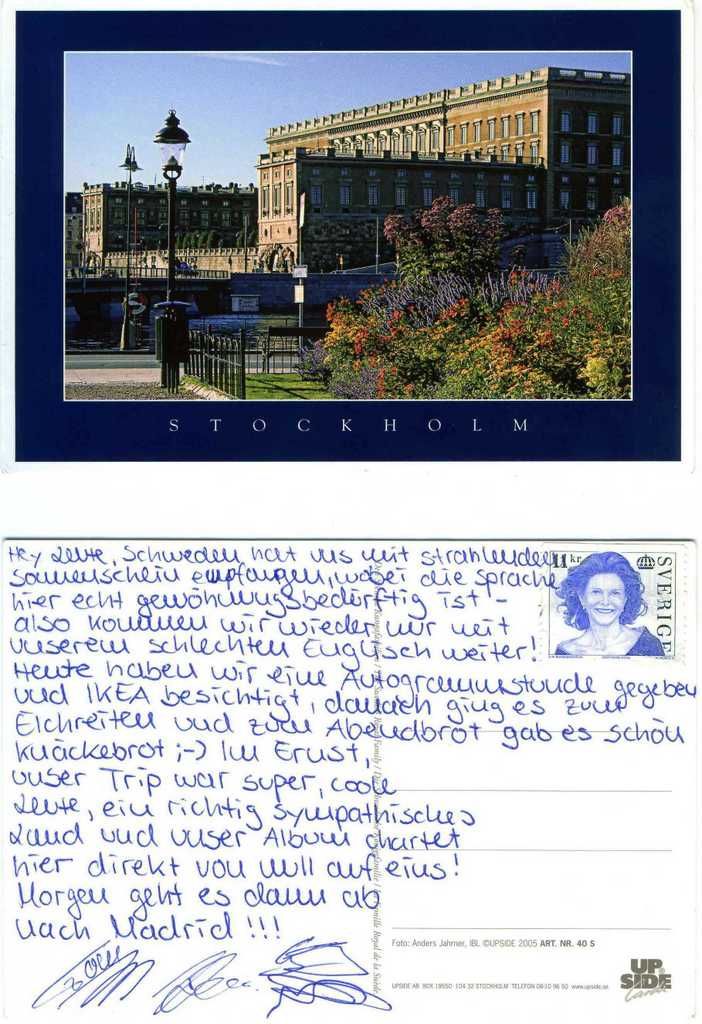 STOCKHOLM
Hey Leute, Schweden hat uns mit strahlenden
Sonnenschein empfangen, wobei die Sprache
hier echt gewöhnungsbedürftig ist -
also kommen wir wieder nur mit
unserem schlechten Englisch weiter!
Heute haben wir eine Autogrammstunde gegeben
und IKEA besichtigt, danach ging es zum
Elchreiten und zum Abendbrot gab es schön
Knäckebrot ;-) Im Ernst,
unser Trip war super, coole
Leute, ein richtig sympathisches
Land und unser Album chartet
hier direkt von null auf eins!
Morgen geht es dann ab
nach Madrid!!!
11 kr
SVERIGE
Foto: Anders Jahrner, IBL ©UPSIDE 2005 ART. NR. 40 S
UPSIDE AB BOX 19550 104 32 STOCKHOLM TELEFON 0810 96 50 www.upside.se
UP
SIDE
Cards